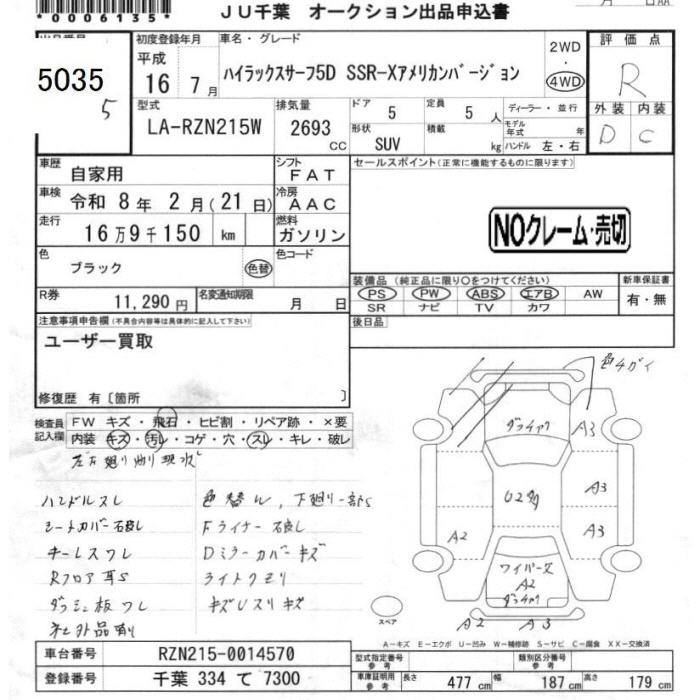 *0006135*
JU千葉 オークション出品申込書
5035
5
初度登録年月
平成
16 7月
車名・グレード
ハイラックスサーフ5D SSR-Xアメリカンバージョン
2WD
・
4WD
評価点
R
外装 内装
D C
型式
LA-RZN215W
排気量
2693 CC
ドア
5
定員
5 人
形状
SUV
積載
kg
ディーラー・並行
モデル年式 年
ハンドル 左・右
車歴
自家用
シフト
FAT
車検
令和 8年 2月(21日)
冷房
AAC
走行
16万9千150 km
燃料
ガソリン
色
ブラック
色替
色コード
R券
11,290円
名変通知期限
月 日
セールスポイント(正常に機能するものに限ります)
NOクレーム・売切
装備品(純正品に限り○をつけてください)
PS PW ABS エアB AW
SR ナビ TV カワ
新車保証書
有・無
後日品
注意事項申告欄(不具合内容等は具体的に記入して下さい)
ユーザー買取
修復歴 有〔箇所 〕
検査員記入欄
FW キズ・飛石・ヒビ割・リペア跡・×要
内装 キズ・汚レ・コゲ・穴・スレ・キレ・破レ
ハンドルスレ
色替ん、下廻り一部S
シートカバー右良し
Fライナー右良し
キーレスワレ
Dミラーカバーキズ
RフロアヨS
ライトクモリ
ダッシュ板ワレ
キズUスリキズ
社外品有
色チガイ
ダッチャク
A3
U2多
A3
A2
A3
ワイパーヌ
A2
ダッチャク
A2 A3
スペア
A-キズ E-エクボ U-凹み W-補修跡 S-サビ C-腐食 XX-交換済
車台番号
RZN215-0014570
登録番号
千葉 334 て 7300
型式指定番号
参考
類別区分番号
参考
車庫証明用
参考
長さ 477 cm
幅 187 cm
高さ 179 cm